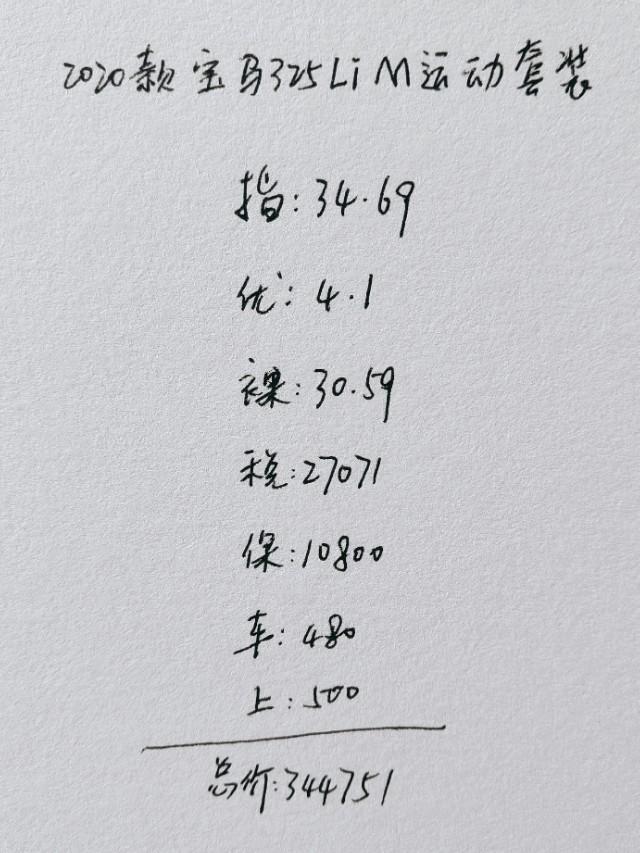 2020款宝马325Li M运动套装
指:34.69
优:4.1
裸:30.59
税:27071
保:10800
车:480
上:500
总价:344751